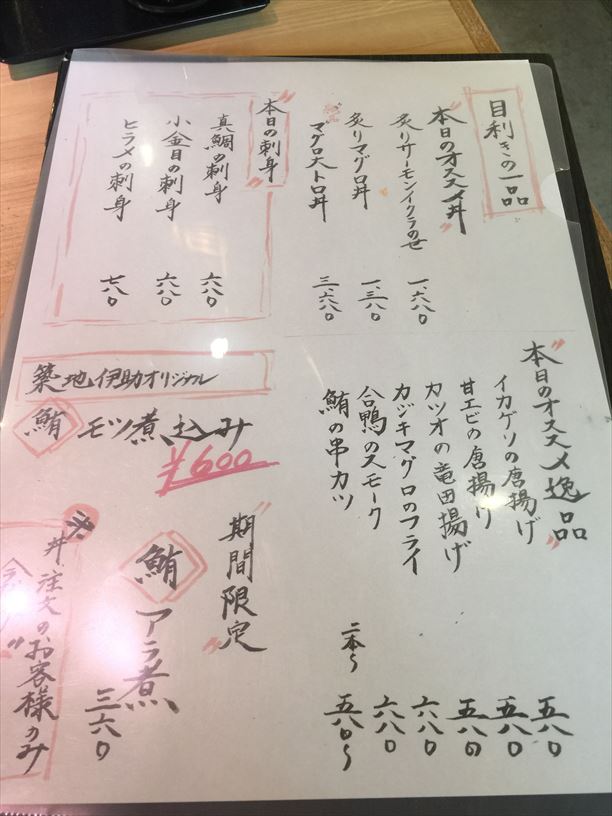 目利きの一品
"本日のオススメ丼"
炙りサーモンイクラのせ 一、六八〇
炙りマグロ丼 一、三八〇
マグロ大トロ丼 三、六八〇
"本日の刺身"
真鯛の刺身 六八〇
小金目の刺身 六八〇
ヒラメの刺身 七八〇
"本日のオススメ逸品"
イカゲソの唐揚げ 五八〇
甘エビの唐揚げ 五八〇
カツオの竜田揚げ 五八〇
カジキマグロのフライ 六八〇
合鴨のスモーク 六八〇
鮪の串カツ 二本〜 五八〇〜
築地伊助オリジナル
鮪 モツ煮込み
¥600
"期間限定"
鮪 アラ煮 三六〇
丼注文のお客様のみ